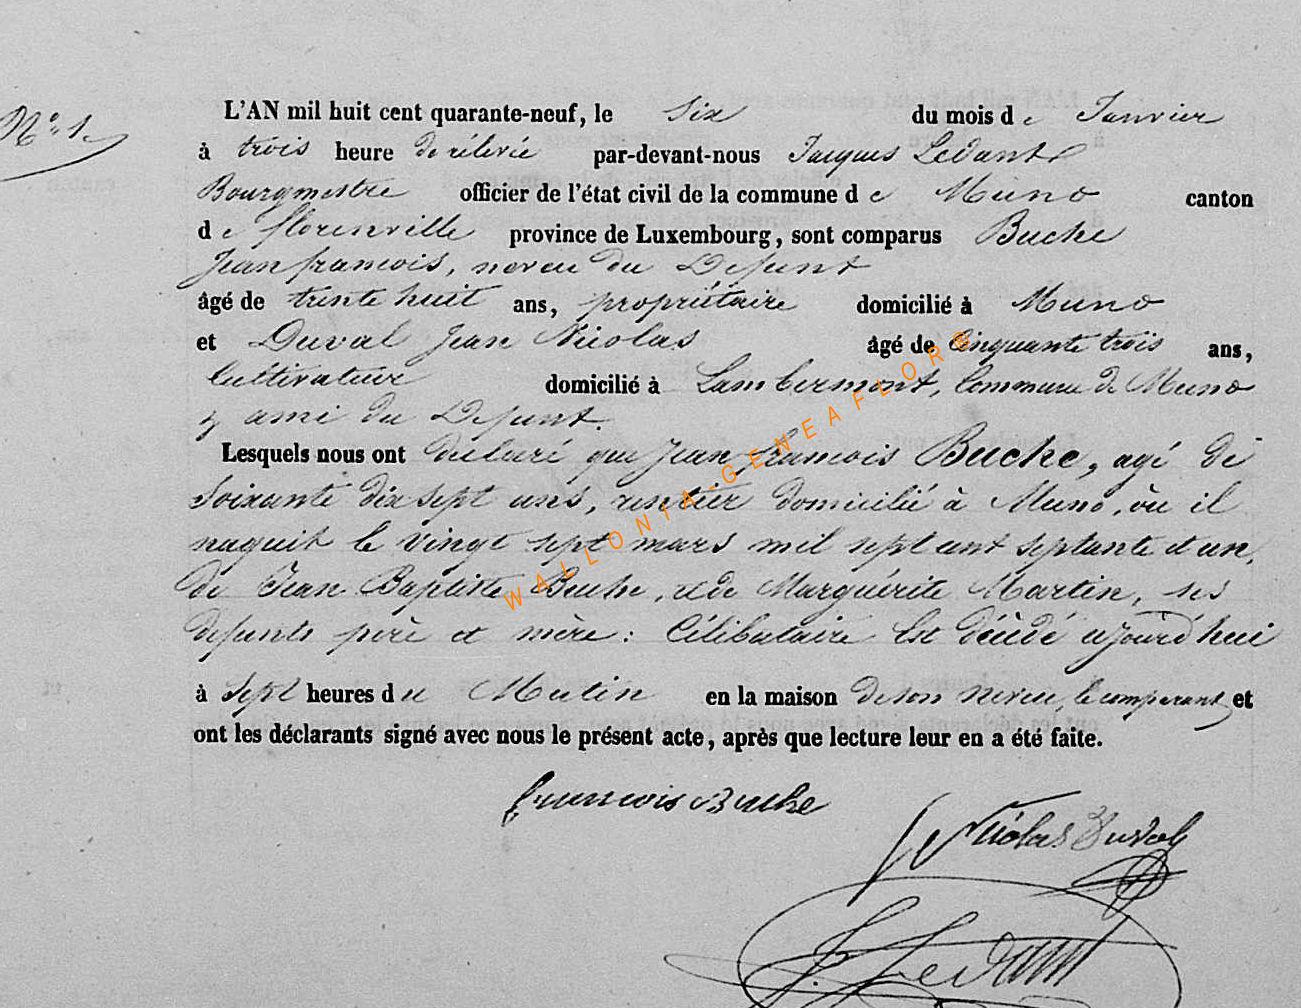 N° 1.
L'AN mil huit cent quarante-neuf, le Six du mois de Janvier
à trois heure de rélévée par-devant-nous Jacques Ledant
Bourgmestre officier de l'état civil de la commune de Muno canton
de florenville province de Luxembourg, sont comparus Buche
Jean francois, neveu du Defunt
âgé de trente huit ans, propriétaire domicilié à Muno
et Duval Jean Nicolas âgé de Cinquante trois ans,
Cultivateur domicilié à Lambermont, Commune de Muno
ami du Defunt.
Lesquels nous ont déclaré que Jean francois Buche, agé de
Soixante dix sept ans, rentier domicilié à Muno, où il
naquit le vingt sept mars mil sept cent septante et un,
de Jean Baptiste Buche, et de Marguérite Martin, ses
defunts père et mère: Célibataire Est décédé ajourd'hui
à Sept heures du Matin en la maison de son neveu, le comparant et
ont les déclarants signé avec nous le présent acte, après que lecture leur en a été faite.
francois Buche
Nicolas Duval
J. Ledant
WALLONIA-GENEAFLORE